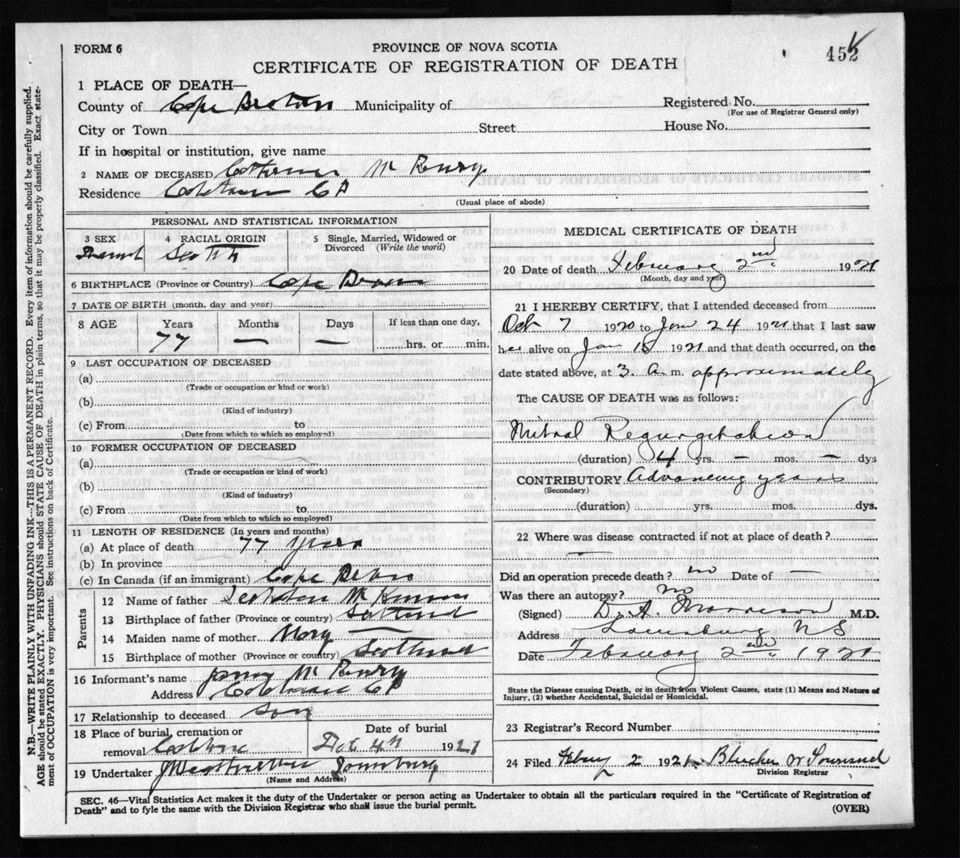 FORM 6
PROVINCE OF NOVA SCOTIA
CERTIFICATE OF REGISTRATION OF DEATH
452
1 PLACE OF DEATH—
County of Cape Breton Municipality of Registered No.
(For use of Registrar General only)
City or Town Street House No.
If in hospital or institution, give name
2 NAME OF DECEASED
Residence C B
(Usual place of abode)
PERSONAL AND STATISTICAL INFORMATION
3 SEX 4 RACIAL ORIGIN 5 Single, Married, Widowed or Divorced (Write the word)
Scotch
6 BIRTHPLACE (Province or Country) Cape Breton
7 DATE OF BIRTH (month, day and year)
8 AGE Years Months Days If less than one day,
77 — — hrs. or min.
9 LAST OCCUPATION OF DECEASED
(a)
(Trade or occupation or kind or work)
(b)
(Kind of industry)
(c) From to
(Date from which to which so employed)
10 FORMER OCCUPATION OF DECEASED
(a)
(Trade or occupation or kind of work)
(b)
(Kind of industry)
(c) From to
(Date from which to which so employed)
11 LENGTH OF RESIDENCE (In years and months)
(a) At place of death 77 Years
(b) In province
(c) In Canada (if an immigrant) Cape Breton
Parents
12 Name of father
13 Birthplace of father (Province or country) Scotland
14 Maiden name of mother Mary —
15 Birthplace of mother (Province or country) Scotland
16 Informant's name
Address C B
17 Relationship to deceased Son
18 Place of burial, cremation or removal
Date of burial
4th 1921
19 Undertaker
(Name and Address)
MEDICAL CERTIFICATE OF DEATH
20 Date of death February 2nd 1921
(Month, day and year)
21 I HEREBY CERTIFY, that I attended deceased from
Oct 7 1920 to Jan 24 1921 that I last saw
her alive on Jan 1921 and that death occurred, on the
date stated above, at 3 a.m. approximately
The CAUSE OF DEATH was as follows:
Mitral Regurgitation
(duration) 4 yrs. — mos. — dys
CONTRIBUTORY Advancing years
(Secondary)
(duration) yrs. mos. dys
22 Where was disease contracted if not at place of death?
—
Did an operation precede death? no Date of —
Was there an autopsy? no
(Signed) D. A. Morrison M.D.
Address Louisburg N S
Date February 2nd 1921
State the Disease causing Death, or in death from Violent Causes, state (1) Means and Nature of
Injury, (2) whether Accidental, Suicidal or Homicidal.
23 Registrar's Record Number
24 Filed 2 1921
Division Registrar
SEC. 46—Vital Statistics Act makes it the duty of the Undertaker or person acting as Undertaker to obtain all the particulars required in the "Certificate of Registration of
Death" and to fyle the same with the Division Registrar who shall issue the burial permit.
(OVER)
N.B.—WRITE PLAINLY WITH UNFADING INK—THIS IS A PERMANENT RECORD. Every item of information should be carefully supplied.
AGE should be stated EXACTLY. PHYSICIANS should STATE CAUSE OF DEATH in plain terms, so that it may be properly classified. Exact state-
ment of OCCUPATION is very important. See instructions on back of Certificate.